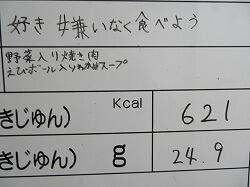 好き嫌いなく食べよう
野菜入り焼き肉
えびボール入りわかめスープ
きじゅん) Kcal 621
きじゅん) g 24.9